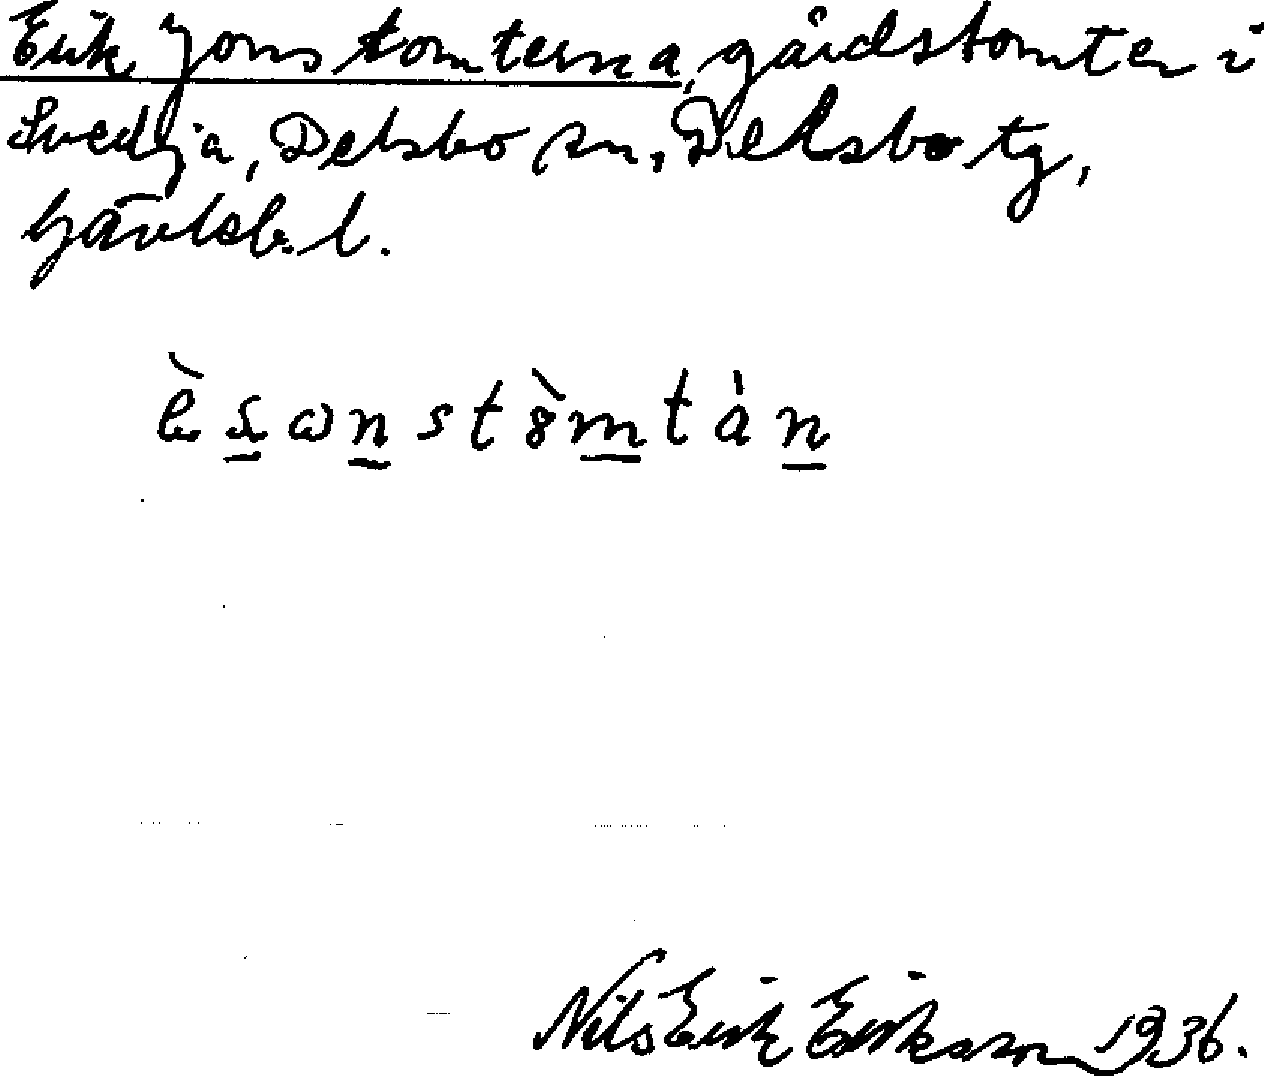 Erik Jons tomterna, gårdstomter i
Svedja, Delsbo sn, Delsbo tg,
Gävlebs l.
Nils Erik Eriksson 1936.